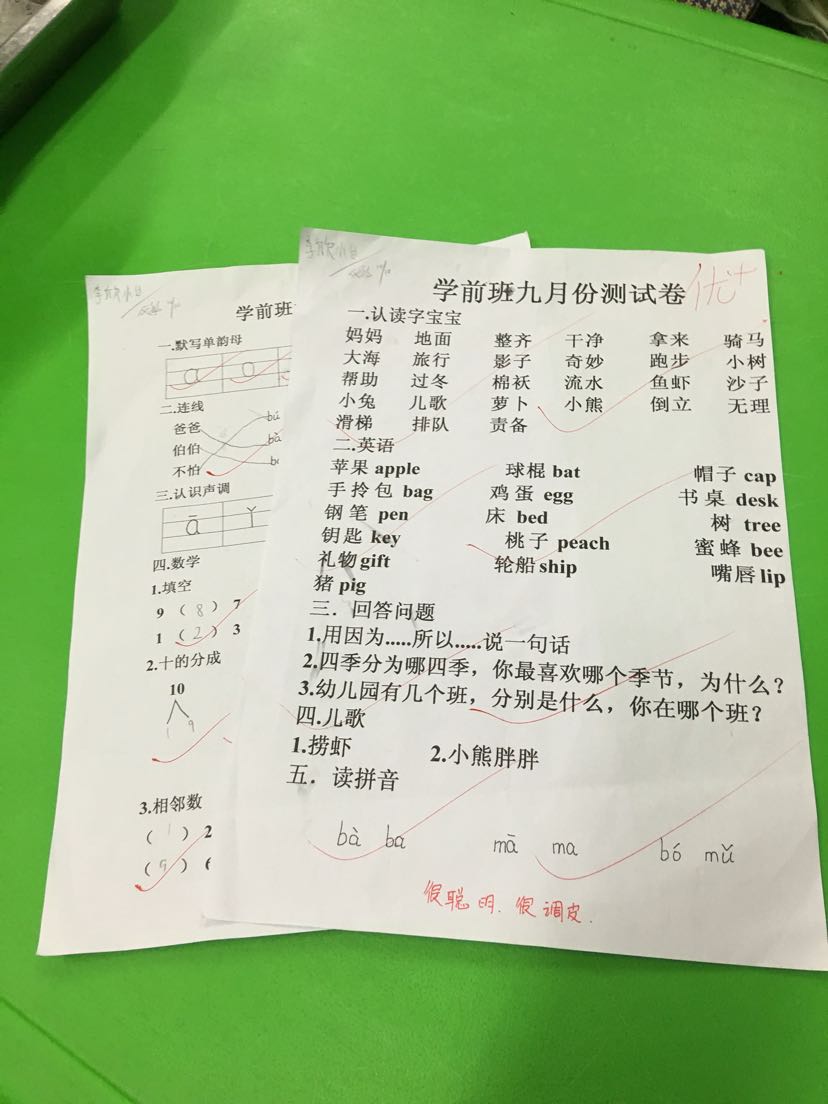 学前班九月份测试卷
优+
一.认读字宝宝
妈妈 地面 整齐 干净 拿来 骑马
大海 旅行 影子 奇妙 跑步 小树
帮助 过冬 棉袄 流水 鱼虾 沙子
小兔 儿歌 萝卜 小熊 倒立 无理
滑梯 排队 责备
二.英语
苹果 apple 球棍 bat 帽子 cap
手拎包 bag 鸡蛋 egg 书桌 desk
钢笔 pen 床 bed 树 tree
钥匙 key 桃子 peach 蜜蜂 bee
礼物 gift 轮船 ship 嘴唇 lip
猪 pig
三．回答问题
1.用因为.....所以.....说一句话
2.四季分为哪四季，你最喜欢哪个季节，为什么？
3.幼儿园有几个班，分别是什么，你在哪个班？
四.儿歌
1.捞虾 2.小熊胖胖
五．读拼音
bà ba mā ma bó mǔ
很聪明、很调皮.
学前班
一.默写单韵母
a o
二.连线
爸爸 bú
伯伯 bà
不怕
三.认识声调
ā ǐ
四.数学
1.填空
9 ( 8 ) 7
1 ( 2 ) 3
2.十的分成
10
1 9
3.相邻数
( 1 ) 2